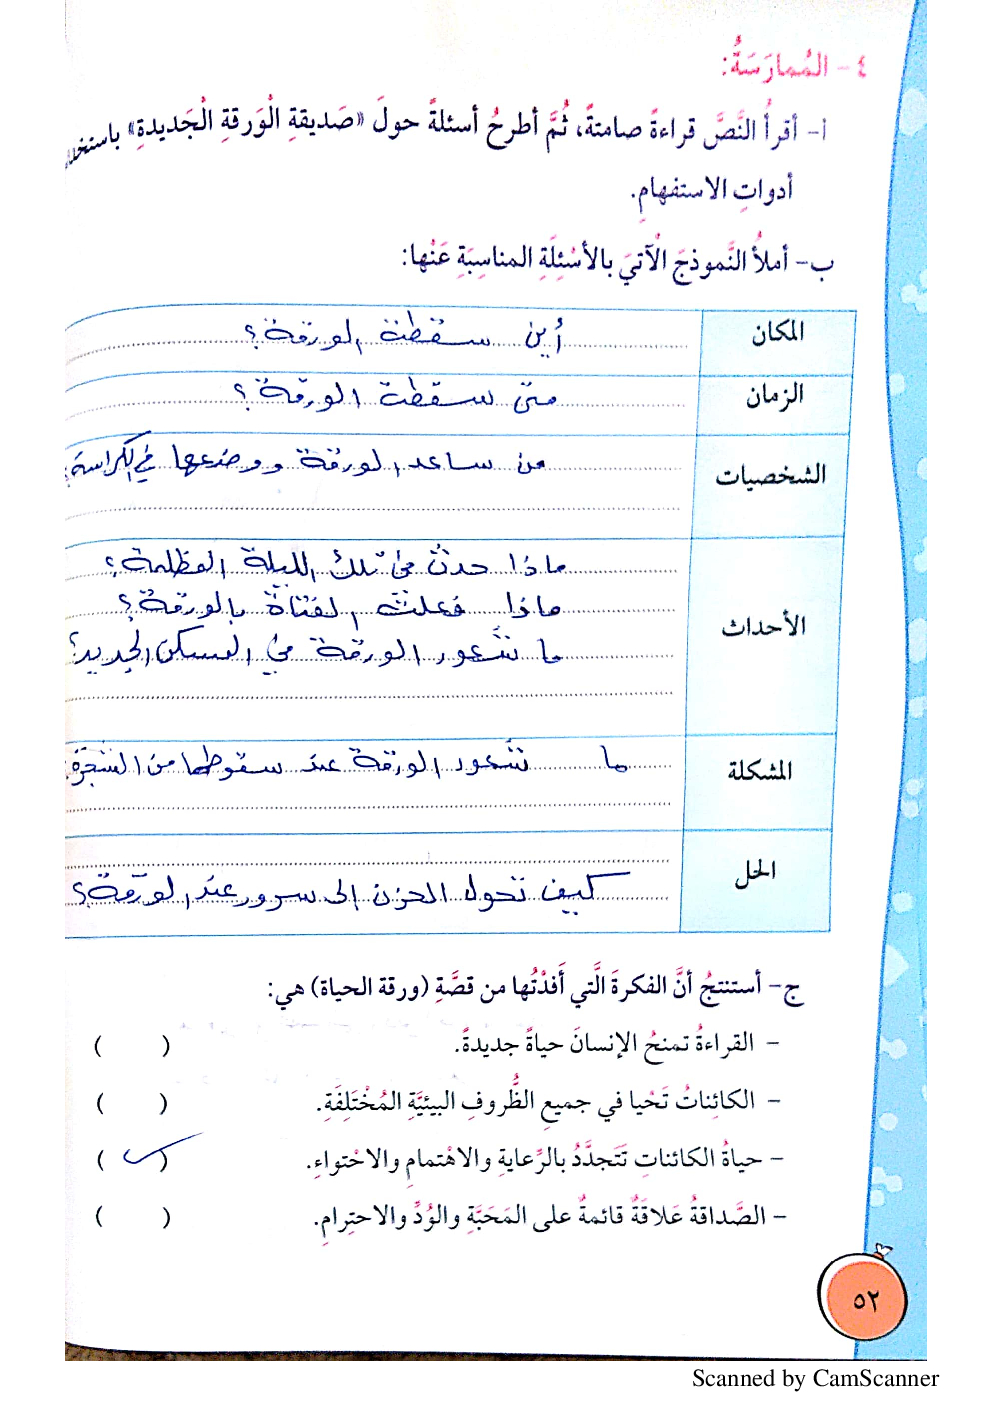 ٤ - الـمُمارَسَةُ:
أ- أقرأُ النَّصَّ قراءةً صامتةً، ثُمَّ أطرحُ أسئلةً حولَ «صَديقةِ الْوَرقةِ الْجَديدةِ»
أدواتِ الاستفهامِ.
ب- أملأُ النَّموذجَ الْآتيَ بالأسْئِلَةِ المناسِبَةِ عَنْها:
المكان أين سقطت الورقة؟
الزمان متى سقطت الورقة؟
الشخصيات من ساعد الورقة ووضعها في الكراسة؟
الأحداث
ماذا حدث في تلك الليلة المظلمة؟
ماذا فعلت الفتاة بالورقة؟
ما شعور الورقة في السكن الجديد؟
المشكلة ما شعور الورقة عند سقوطها من الشجرة
الحل كيف تحول الحزن إلى سرور عند الورقة؟
ج- أستنتجُ أنَّ الفكرةَ الَّتي أَفدْتُها من قصَّةِ (ورقة الحياة) هي:
- القراءةُ تمنحُ الإنسانَ حياةً جديدةً. ( )
- الكائِناتُ تَحْيا في جميعِ الظُّروفِ البيئيَّةِ المُخْتَلِفَةِ. ( )
- حياةُ الكائناتِ تَتَجدَّدُ بالرِّعايةِ والاهْتمامِ والاحْتواءِ. (✓)
- الصَّداقةُ عَلاقَةٌ قائمةٌ على المَحَبَّةِ والوُدِّ والاحتِرامِ. ( )
٥٢
Scanned by CamScanner